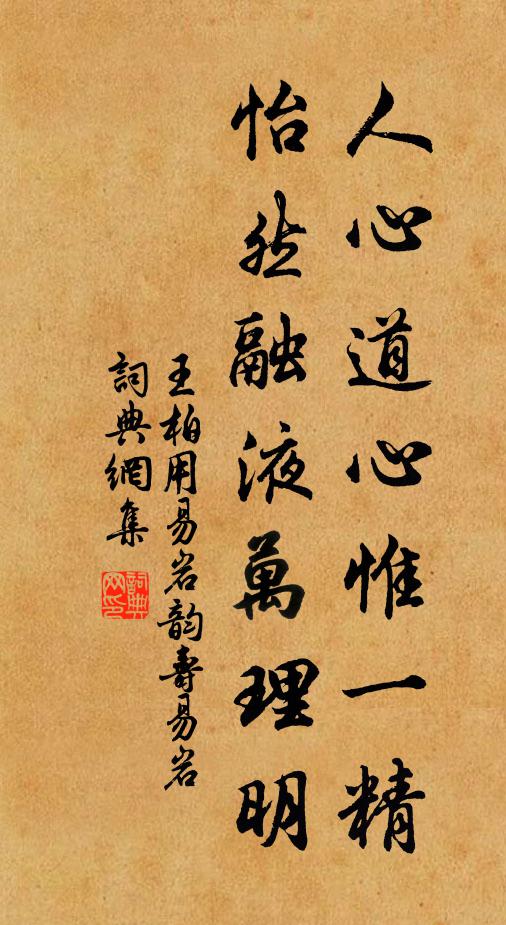 人心道心惟一精
怡然融液萬理明
王柏用易岩韵壽易岩
詞典網集
詞典
网印